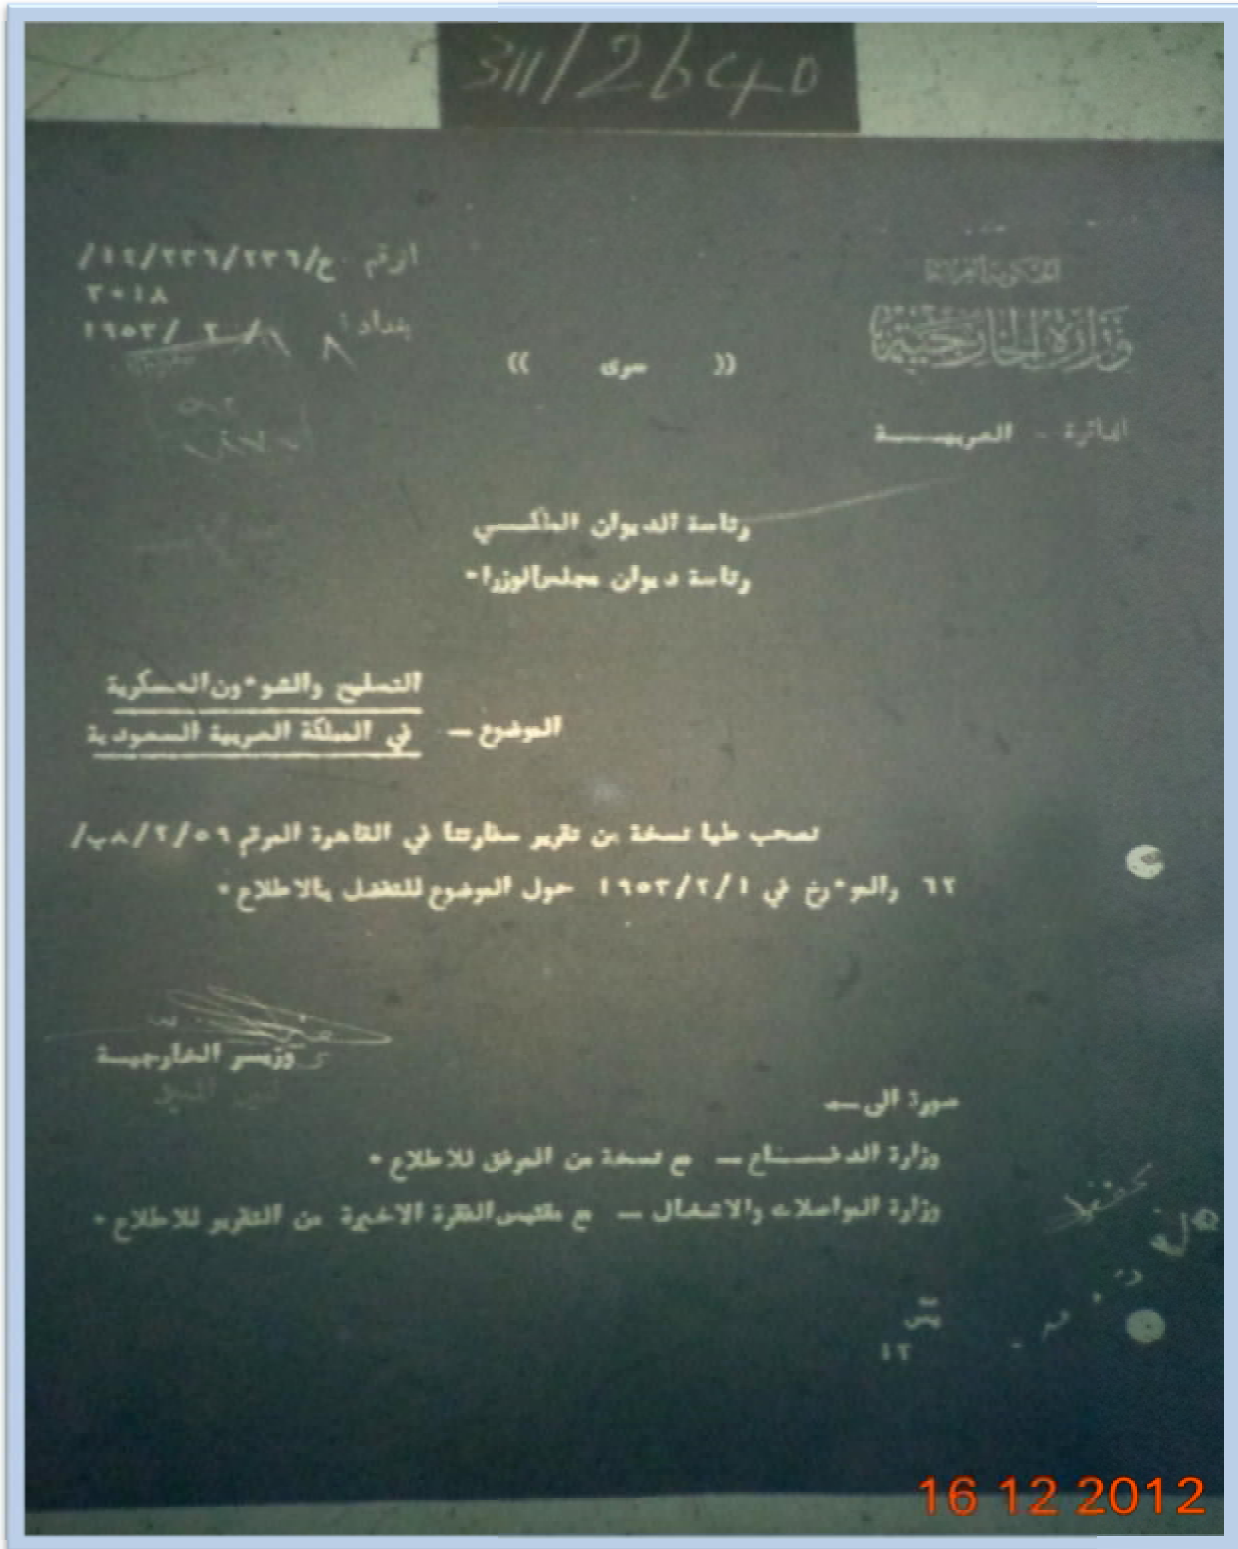 311/2640
الحكومة العراقية
وزارة الخارجية
الدائرة - العربيـــــة
الرقم ع/٢٣٦/٢٣٦/١٢/
٣٠١٨
بغداد : ٨ / ٢ / ١٩٥٣
(( سرى ))
رئاسة الديوان الملكـــي
رئاسة ديوان مجلس الوزراء
التسليح والشوءون العسكرية
الموضوع — في المملكة العربية السعودية
نصحب طيا نسخة من تقرير سفارتنا في القاهرة المرقم ٨/٢/٥٩ب/
٦٢ والموءرخ في ١٩٥٣/٢/١ حول الموضوع للتفضل بالاطلاع ٠
وزيــر الخارجيــة
صورة الى —
وزارة الدفـــــاع — مع نسخة من المرفق للاطلاع ٠
وزارة المواصلات والاشغال — مع مقتبس الفقرة الاخيرة من التقرير للاطلاع ٠
تحفظ
١٢
16 12 2012